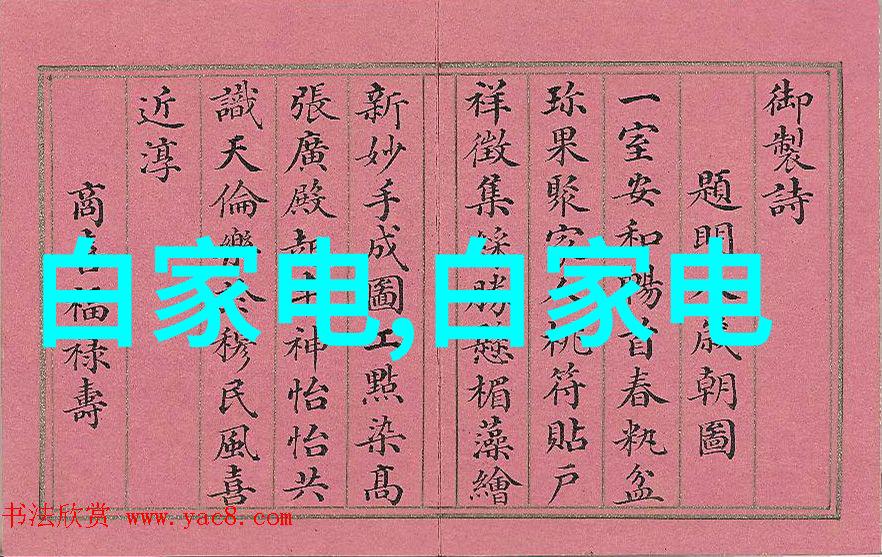 御製詩
題明人歲朝圖
一室安和陽首春籸盆
珎果聚人桃符貼戶
祥徵集綵勝懸楣藻繪
新妙手成圖工點染高
張廣殿神怡怡共
識天倫樂於穆民風喜
近淳
福禄壽
白家电,白家电
书法欣赏 www.yac8.com